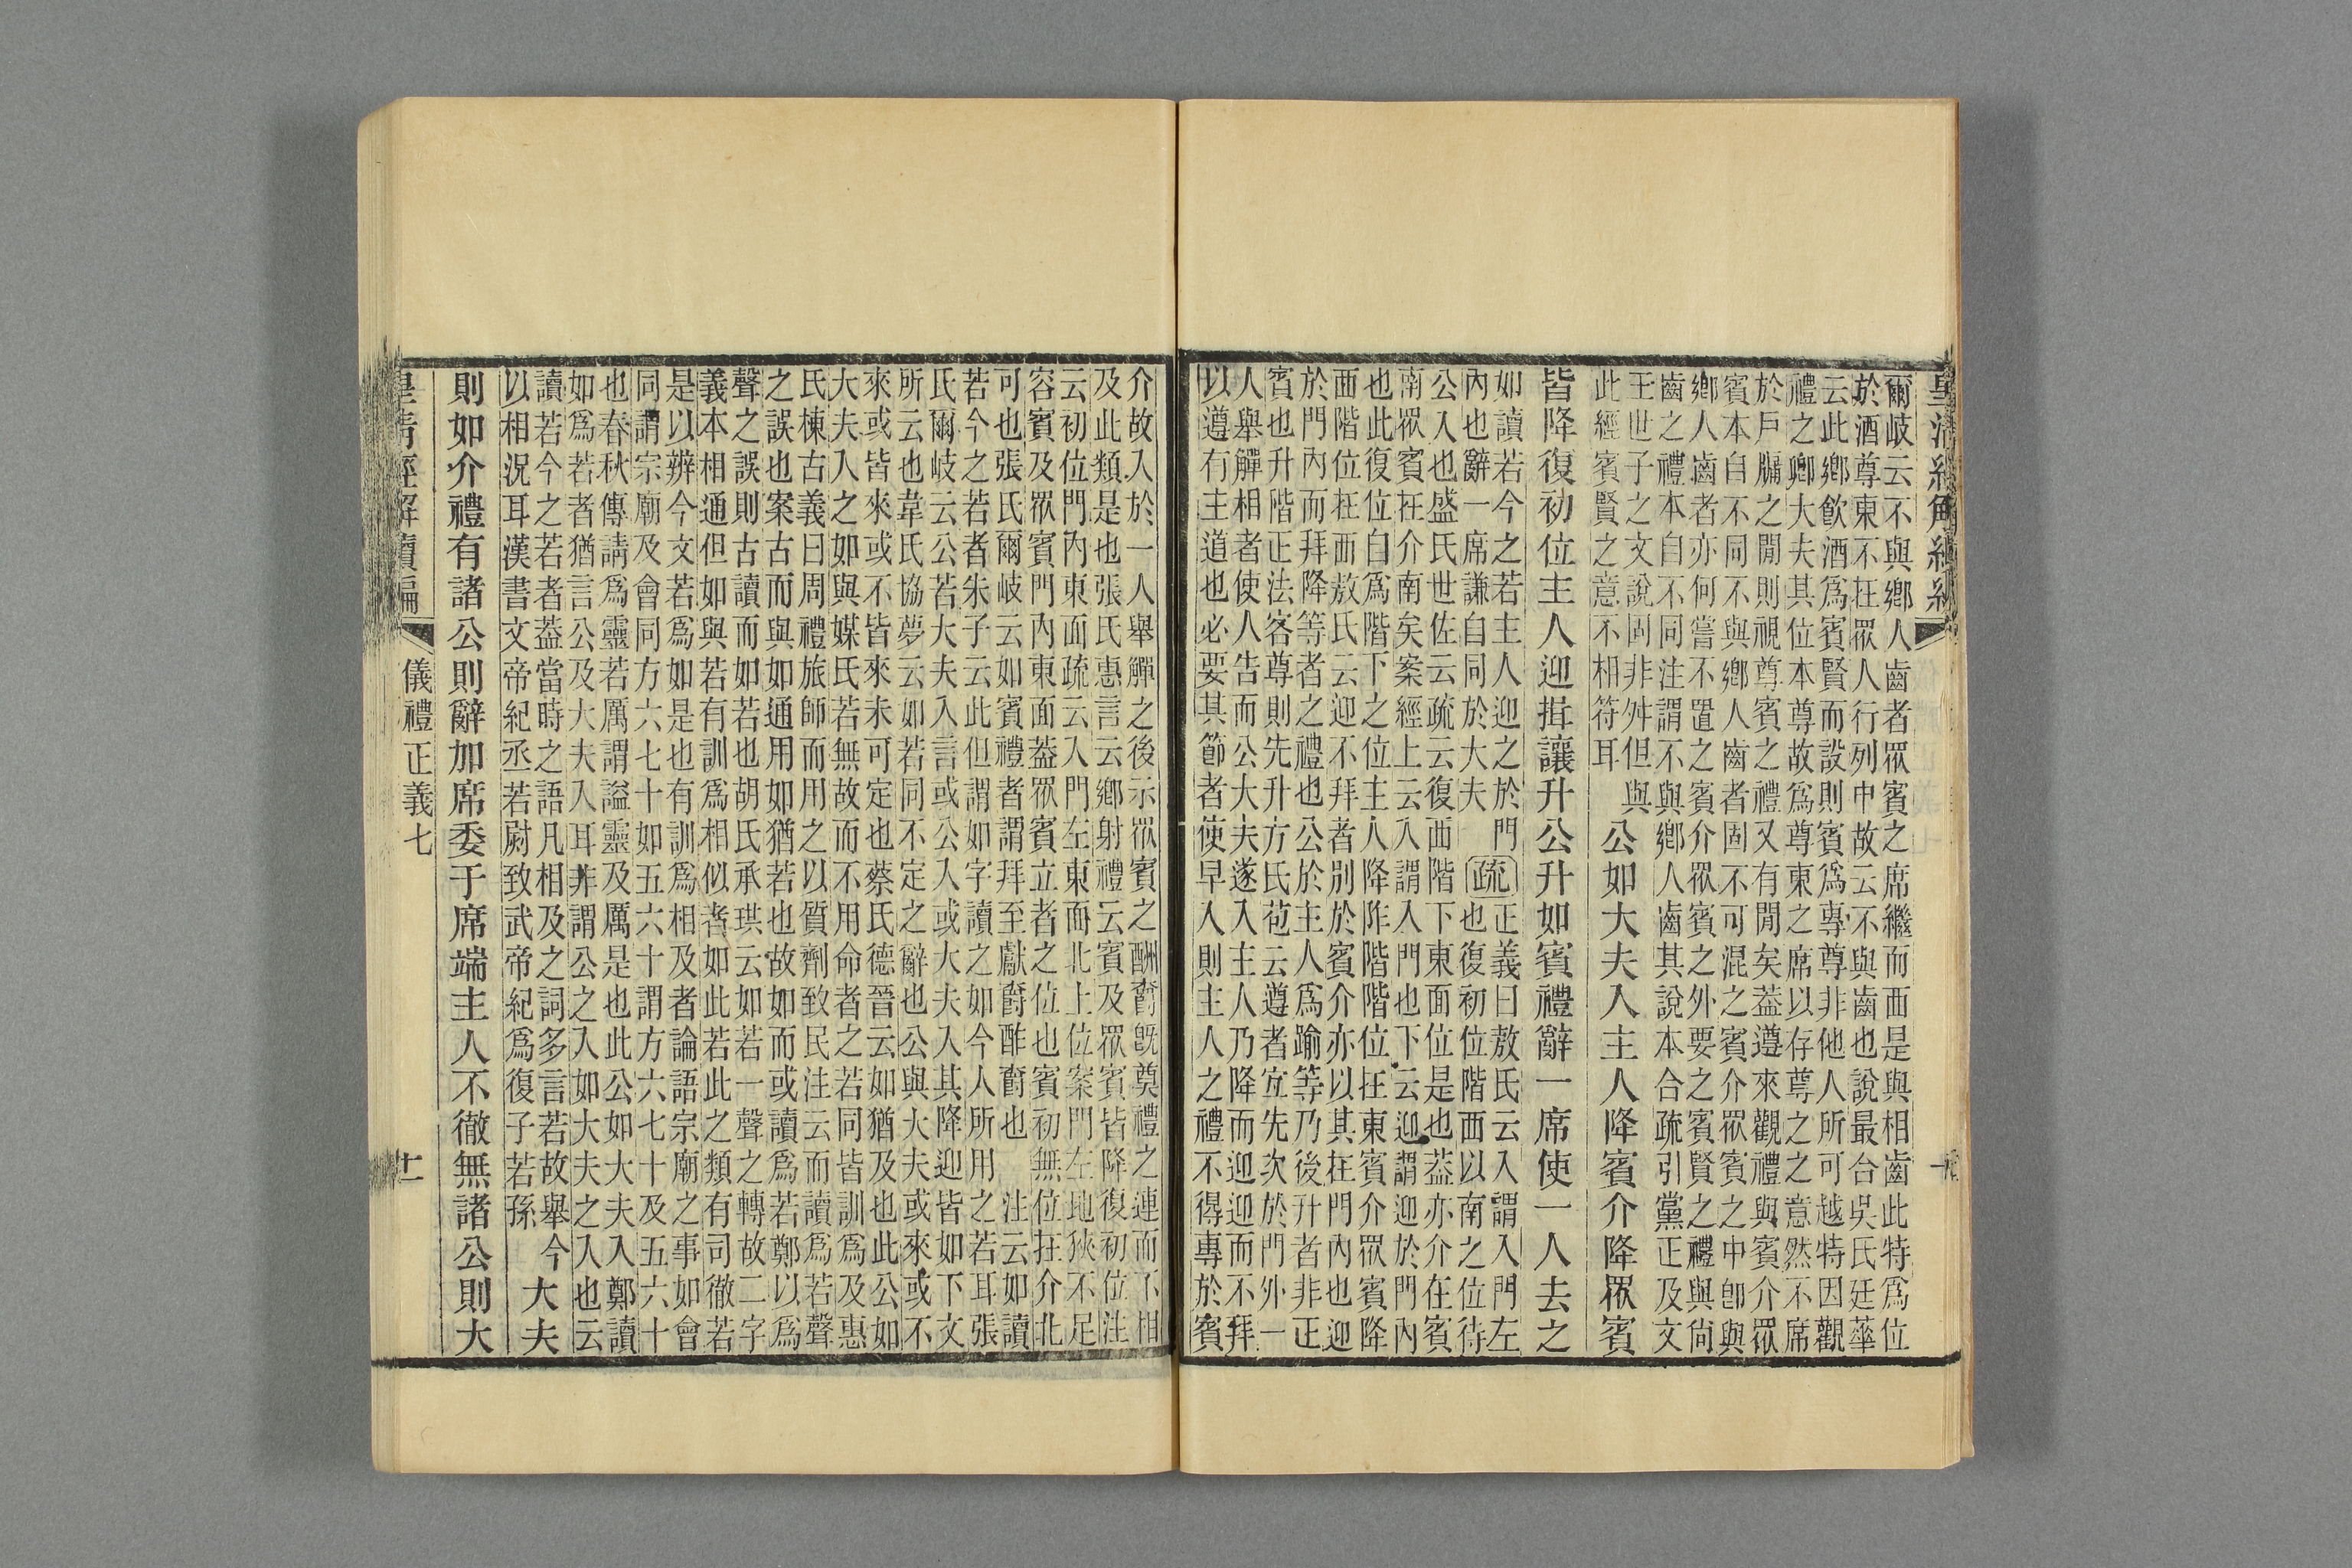 皇清經解續編
爾岐云不與鄉人齒者眾賓之席繼而西是與相齒此特爲位
於酒尊東不在眾人行列中故云不與齒也說最合吳氏廷華
云此鄉飲酒爲賓賢而設則賓爲專尊非他人所可越特因觀
禮之卿大夫其位本尊故爲尊東之席以存尊之之意然不席
於戶牖之閒則視尊賓之禮又有閒矣葢遵來觀禮與賓介眾
賓本自不同不與鄉人齒者固不可混之賓介眾賓之中卽與
鄉人齒者亦何嘗不置之賓介眾賓之外要之賓賢之禮與尙
齒之禮本自不同注謂不與鄉人齒其說本合疏引黨正及文
王世子之文說固非舛但與
此經賓賢之意不相符耳
公如大夫入主人降賓介降眾賓
皆降復初位主人迎揖讓升公升如賓禮辭一席使一人去之
如讀若今之若主人迎之於門
內也辭一席謙自同於大夫
疏
正義曰敖氏云入謂入門左
也復初位階西以南之位待
公入也盛氏世佐云疏云復西階下東面位是也葢亦介在賓
南眾賓在介南矣案經上云入謂入門也下云迎謂迎於門內
也此復位自爲階下之位主人降阼階階位在東賓介眾賓降
西階位在西敖氏云迎不拜者別於賓介亦以其在門內也迎
於門內而拜降等者之禮也公於主人爲踰等乃後升者非正
賓也升階正法客尊則先升方氏苞云遵者宜先次於門外一
人舉觶相者使人告而公大夫遂入主人乃降而迎迎而不拜
以遵有主道也必要其節者使早入則主人之禮不得專於賓
介故入於一人舉觶之後示眾賓之酬爵旣奠禮之連而不相
及此類是也張氏惠言云鄉射禮云賓及眾賓皆降復初位注
云初位門內東面疏云入門左東面北上位案門左地狹不足
容賓及眾賓門內東面葢眾賓立者之位也賓初無位在介北
可也張氏爾岐云如賓禮者謂拜至獻爵酢爵也 注云如讀
若今之若者朱子云此但謂如字讀之如今人所用之若耳張
氏爾岐云公若大夫入言或公入或大夫入其降迎皆如下文
所云也韋氏協夢云如若同不定之辭也公與大夫或來或不
來或皆來或不皆來未可定也蔡氏德晉云如猶及也此公如
大夫入之如與媒氏若無故而不用命者之若同皆訓爲及惠
氏棟古義曰周禮旅師而用之以質劑致民注云而讀爲若聲
之誤也案古而與如通用如猶若也故如而或讀爲若鄭以爲
聲之誤則古讀而如若也胡氏承珙云如若一聲之轉故二字
義本相通但如與若有訓爲相似者如此若此之類有司徹若
是以辨今文若爲如是也有訓爲相及者論語宗廟之事如會
同謂宗廟及會同方六七十如五六十謂方六七十及五六十
也春秋傳請爲靈若厲謂謚靈及厲是也此公如大夫入鄭讀
如爲若者猶言公及大夫入耳非謂公之入如大夫之入也云
讀若今之若者葢當時之語凡相及之詞多言若故舉今
以相況耳漢書文帝紀丞若尉致武帝紀爲復子若孫
大夫
則如介禮有諸公則辭加席委于席端主人不徹無諸公則大
皇清經解續編 儀禮正義七 十一